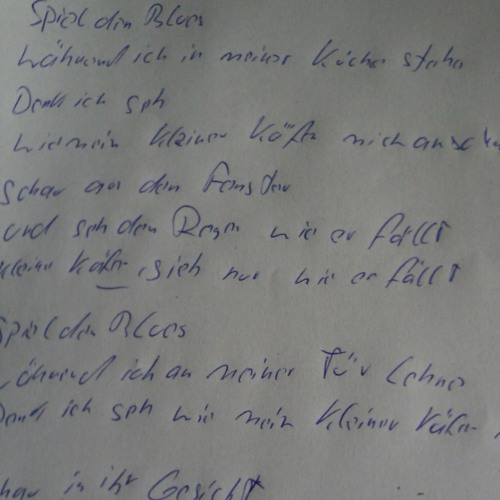 Spiel den Blues
Während ich in meiner Küche stehe
Denk ich seh
wie mein kleiner Käfer mich
Schau aus dem Fenster
und seh den Regen wie er fällt
kleiner Käfer sieh nur wie er fällt
Spiel den Blues
Während ich an meiner Tür Lehne
Denk ich seh wie mein kleiner Käfer
schau in ihr Gesicht